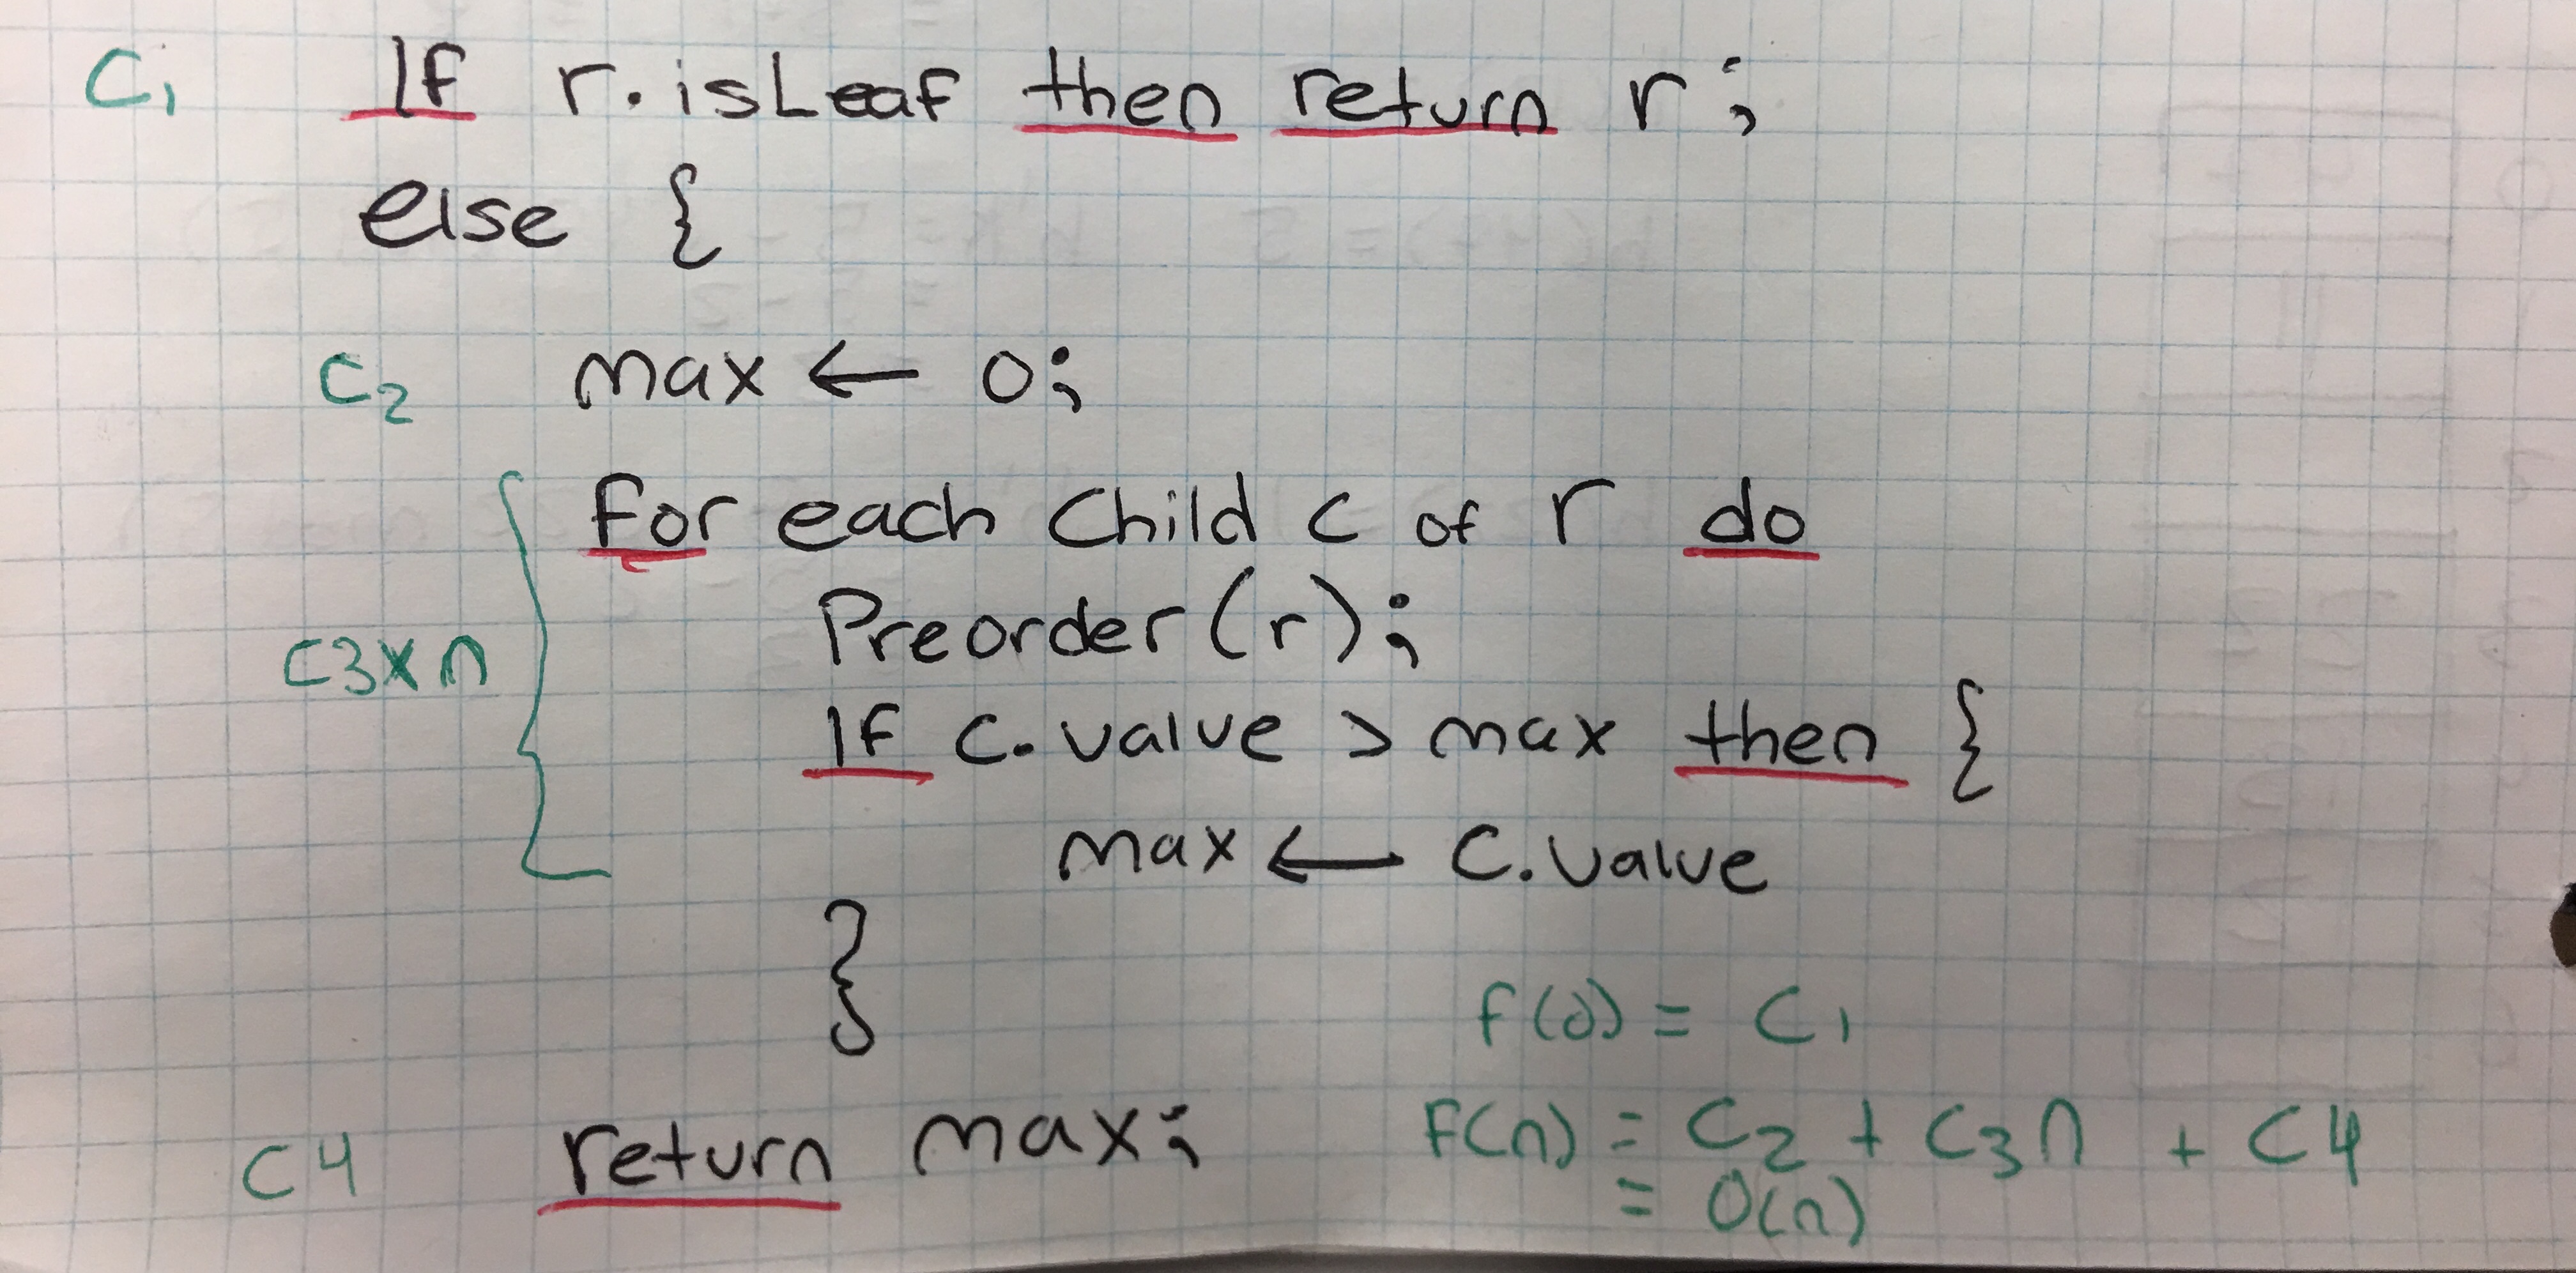 C1 If r.isLeaf then return r;
else {
C2 max ← 0;
for each Child c of r do
Preorder(r);
C3×n If c.value > max then {
max ← c.value
}
f(0) = C1
C4 return max; F(n) = C2 + C3n + C4
= O(n)